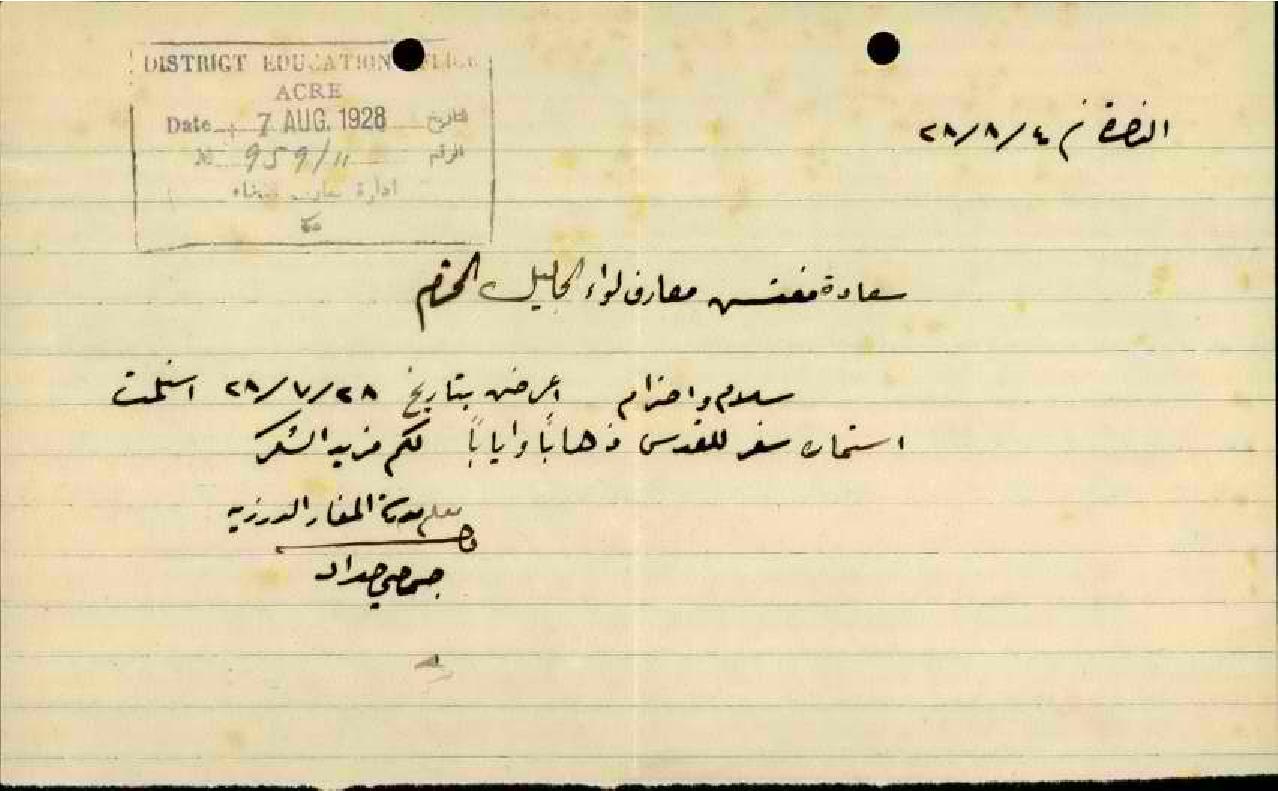 DISTRICT EDUCATION OFFICE
ACRE
Date 7 AUG. 1928 التاريخ
№ 959/11 الرقم
ادارة معارف
الناصرة في ٢٨/٨/٤
سعادة مفتش معارف لواء الجليل المحترم
سلام واحترام اعرض بتاريخ ٢٨/٧/٢٨ استلمت
استمارة سفر للقدس ذهاباً واياباً لكم مزيد الشكر
معلم مدرسة المغار الدرزيه
حداد